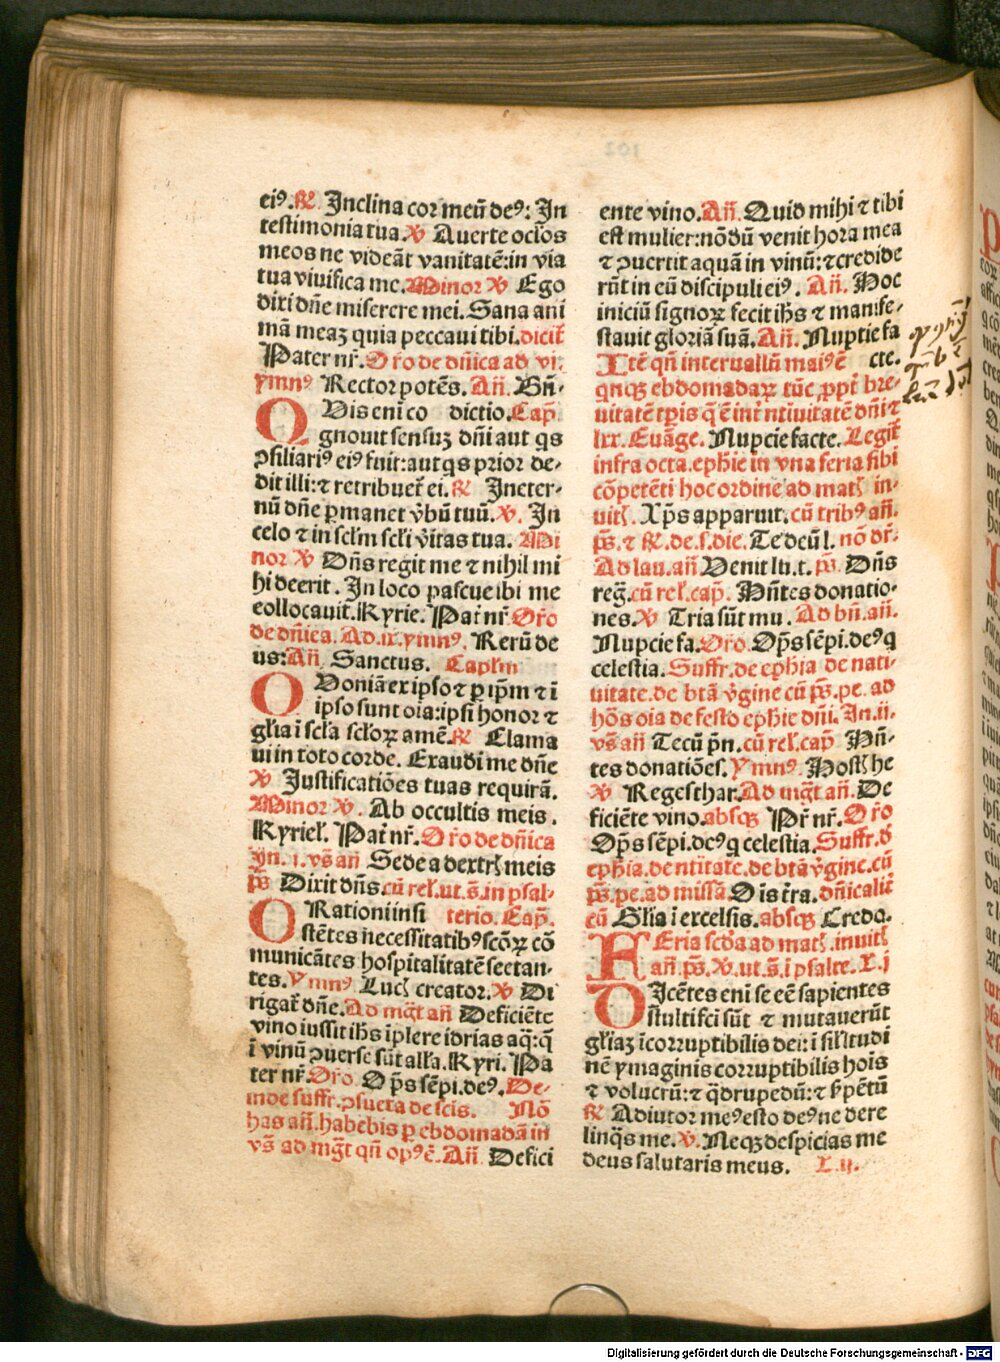 eiꝰ. ℟ Inclina cor meū deꝰ: In
testimonia tua. ℣ Auerte oclo̕s
meos ne videāt vanitatē: in via
tua viuifica me. Minor ℣ Ego
dixi dn̄e miserere mei. Sana ani
mā meaꝫ quia peccaui tibi. dicit̕
Pater nr̄. Or̄o de dn̄ica ad vi.
ymnꝰ Rector potēs. An̄. Bn̄-
Vis eni co dictio. Cap̄.
Q gnouit sensuꝫ dn̄i aut qs
ↄsiliariꝰ eiꝰ fuit: aut qs prior de-
dit illi: ⁊ retribuet̕ ei. ℟ In eter-
nū dn̄e ꝑmanet v̄bū tuū. ℣. In
celo ⁊ in sclm̄ scli̕ v̄itas tua. Mi
nor ℣ Dn̄s regit me ⁊ nihil mi
hi deerit. In loco pascue ibi me
collocauit. Kyrie. Pat̕ nr̄ Or̄o
de dn̄ica. Ad .ix. ymnꝰ. Rerū de
us: An̄ Sanctus. Capl̄m
O Qoniā ex ipso ⁊ ꝑ ip̄m ⁊ ī
ipso sunt oīa: ipsi honor ⁊
glīa ī scl̄a scl̄oꝝ amē. ℟ Clama
ui in toto corde. Exaudi me dn̄e
℣ Justificatiōes tuas requirā.
Minor ℣. Ab occultis meis.
Kyriel̕. Pat̕ nr̄. Or̄o de dn̄ica
Jn. i. vs̄ an̄ Sede a dextrꝭ meis
ps̄ Dixit dn̄s. cū rel̕. ut. s̄. in psal-
O Rationi insi terio. Cap̄.
stētes necessitatibꝰ scōꝝ cō
municātes hospitalitatē sectan-
tes. Ymnꝰ Lucꝭ creator. ℣ Di
rigat̕ dn̄e. Ad mgt̄ an̄ Deficiēte
vino iussit ih̄s īplere idrias aq̄: q̄
ī vinū ↄuerse sūt all̕a. Kyri. Pa
ter nr̄. Or̄o. Op̄s sēpi. deꝰ. De-
inde suffr. ↄsueta de scīs. Nō
has an̄. habebis ꝑ ebdomadā in
vs̄ ad mgt̄ qn̄ opꝰ ē. An̄ Defici
ente vino. An̄. Quid mihi ⁊ tibi
est mulier: nōdū venit hora mea
⁊ ↄuertit aquā in vinū: ⁊ credide
rūt in eū discipuli eiꝰ. An̄. Hoc
iniciū signoꝝ fecit ih̄s ⁊ manife-
stauit gloriā suā. An̄. Nuptie fa
Itē qn̄ interuallū maiꝰ ē cte.
qnqꝫ ebdomadaꝝ tūc ꝓpt̕ bre-
uitatē tp̄is q̄ ē int̕ ntiuitatē dn̄i ⁊
lxx. Euāge. Nupcie facte. Legit̕
infra octa. eph̄ie in vna feria sibi
cōpetēti hoc ordine ad matꝭ in-
uitꝭ. Xp̄s apparuit. cū tribꝰ an̄.
ps̄. ⁊ ℟. de. s. die. Te deū l. nō dr̄.
Ad lau. an̄ Venit lu. t. ps̄. Dn̄s
reḡ. cū rel̕. cap̄. Hn̄tes donatio-
nes. ℣ Tria sūt mu. Ad bn̄. an̄.
Nupcie fa. Or̄o. Op̄s sēpi. deꝰ q
celestia. Suffr. de eph̄ia de nati-
uitate. de btā v̄gine cū ps̄. pe. ad
hōs oīa de festo eph̄ie dn̄i. Jn. ii.
vs̄ an̄ Tecū pn̄. cū rel̕. cap̄ Hn̄-
tes donatiōes. Ymnꝰ Hostꝭ he
℣ Reges thar. Ad mgt̄ an̄. De
ficiēte vino. absqꝫ Pr̄ nr̄. Or̄o
Op̄s sēpi. deꝰ q celestia. Suffr. d̄
eph̄ia. de ntītate. de btā v̄gine. cū
ps̄. pe. ad missā. Oīs t̄ra. dn̄icalit̕
cū Glīa ī excelsis. absqꝫ Credo.
F Eria scd̄a ad matꝭ. inuitꝭ
an̄. ps̄. ℣. ut. s̄. ī psalte. L. j
D Jcētes eni se eē sapientes
stulti fc̄i sūt ⁊ mutauerūt
glīaꝫ īcorruptibilis dei: ī sil̕itudi
nē ymaginis corruptibilis hoīs
⁊ volucrū: ⁊ q̄drupedū: ⁊ ẜpētū
℟ Adiutor meꝰ esto deꝰ ne dere
linqs me. ℣. Neqꝫ despicias me
deus salutaris meus. L. ij.